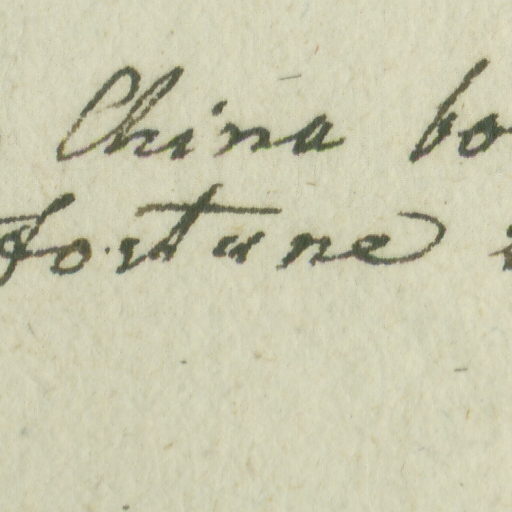 China bo
fortune